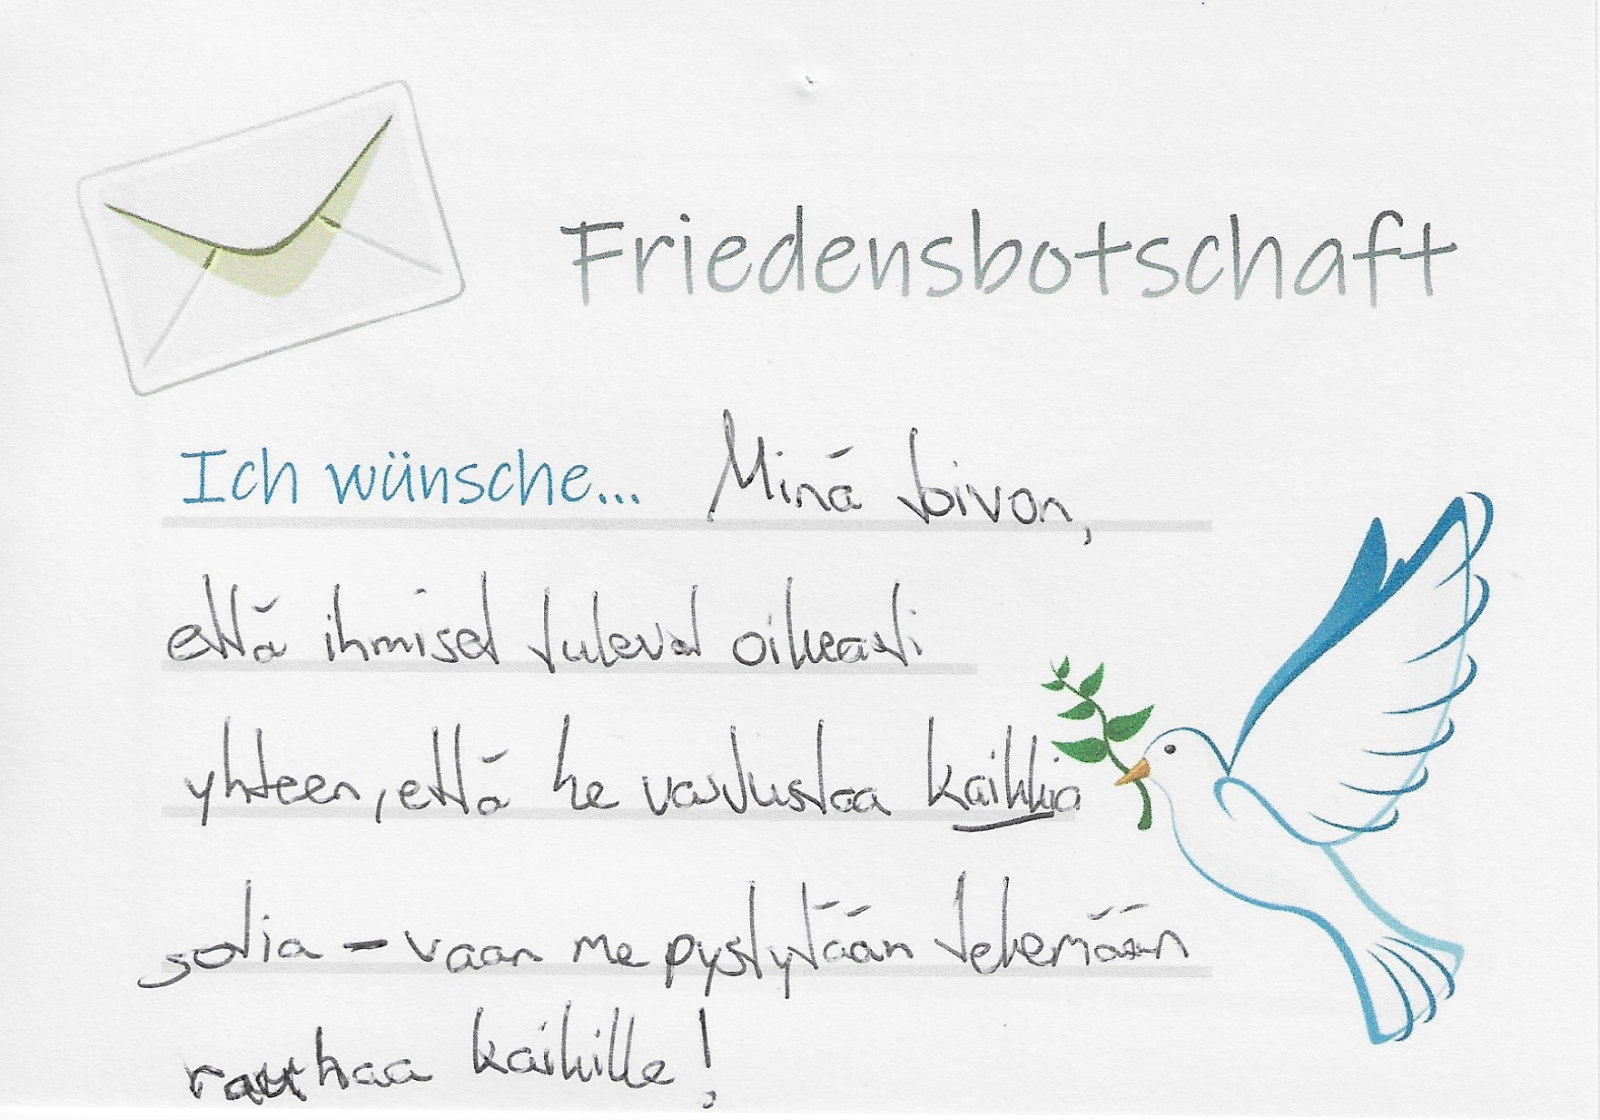 Friedensbotschaft
Ich wünsche... Minä toivon,
että ihmiset tulevat oikeasti
yhteen, että he vastustaa kaikkia
sotia – vaan me pystytään tekemään
rauhaa kaikille!